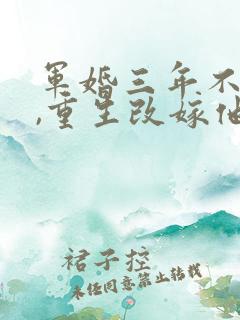 军婚三年不
,重生改嫁他
裙子控
未经同意禁止转载